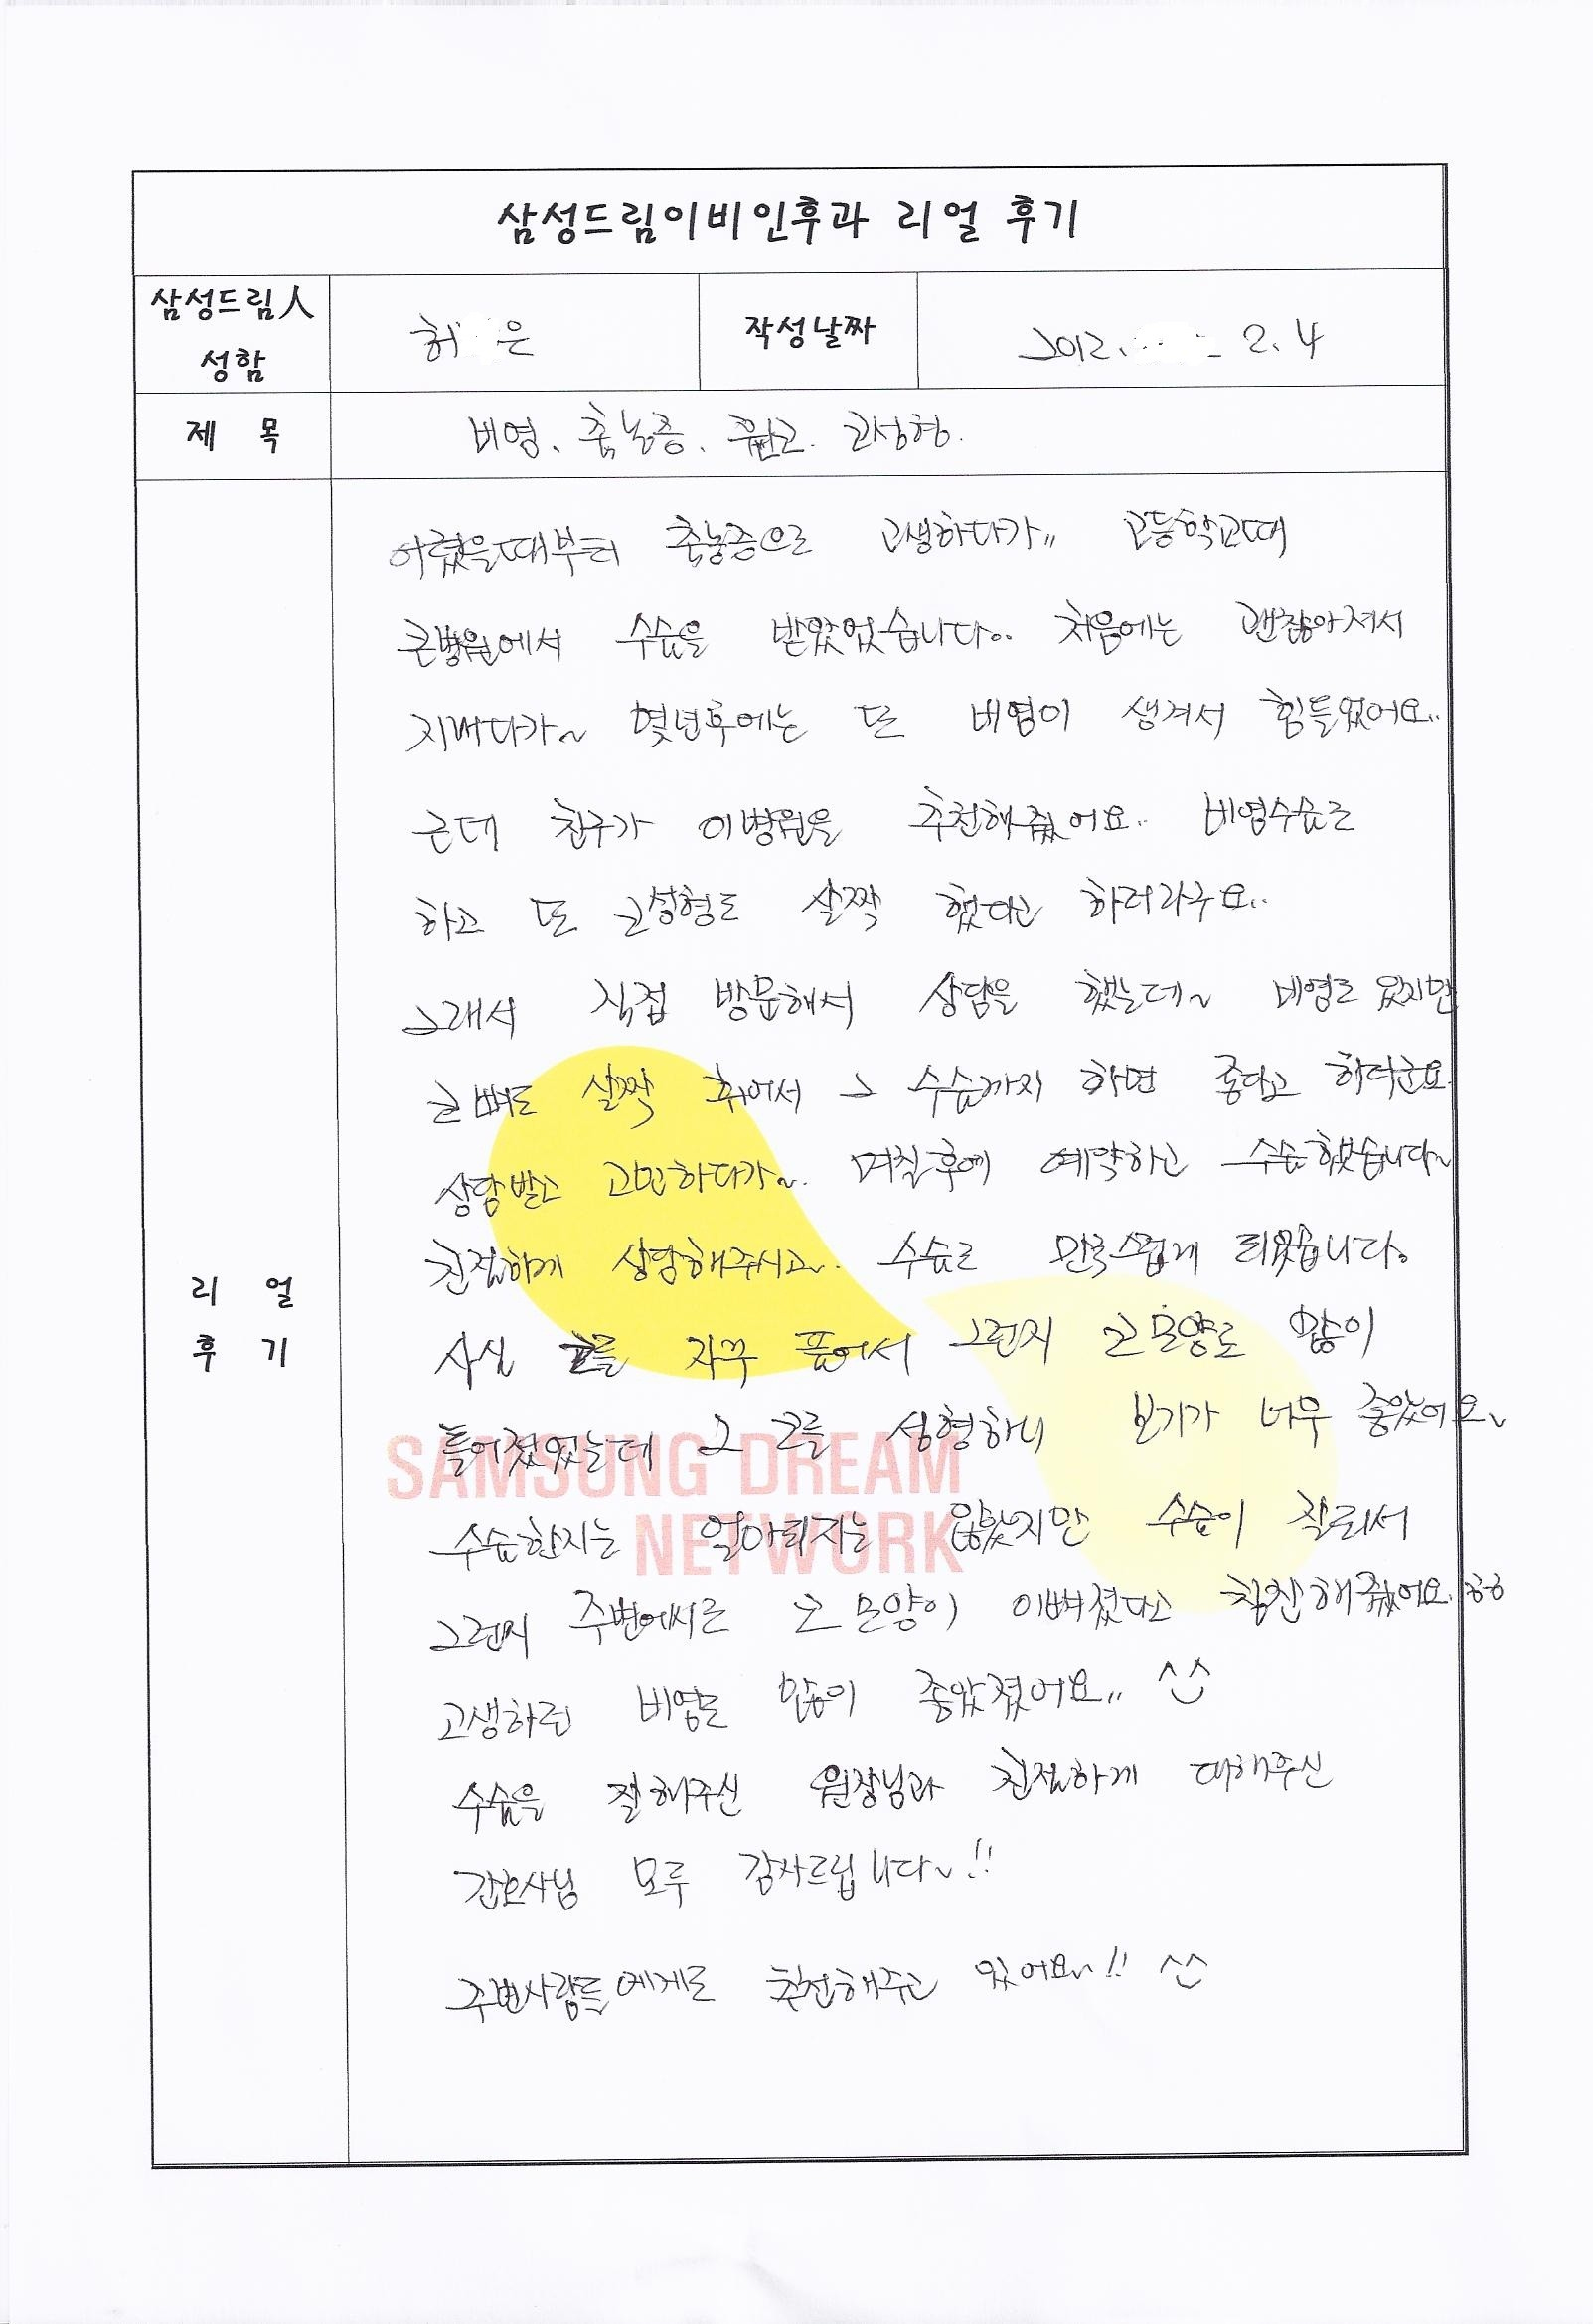 삼성드림이비인후과 리얼 후기
삼성드림人
성함
허 은
작성날짜
2012. 2. 4
제 목
비염. 축농증. 휜코. 코성형.
어렸을때부터 축농증으로 고생하다가,, 고등학교때
큰병원에서 수술을 받았었습니다.. 처음에는 괜찮아져서
지내다가~ 몇년후에는 또 비염이 생겨서 힘들었어요..
근데 친구가 이병원을 추천해줬어요.. 비염수술도
하고 또 코성형도 살짝 했다고 하더라구요..
그래서 직접 방문해서 상담을 했는데~ 비염도 있지만
코뼈도 살짝 휘어서 그 수술까지 하면 좋다고 하더군요
상담받고 고민하다가~. 며칠후에 예약하고 수술했습니다~
친절하게 상담해주시고~. 수술도 만족스럽게 되었습니다.
사실 코를 자꾸 풀어서 그런지 코모양도 많이
틀어졌었는데 그 코를 성형하니 보기가 너무 좋았어요~
수술한지는 얼마되지는 않았지만 수술이 잘되서
그런지 주변에서도 코모양이 이뻐졌다고 칭찬해줬어요.ㅎㅎ
고생하던 비염도 많이 좋아졌어요,, ^^
수술을 잘해주신 원장님과 친절하게 대해주신
간호사님 모두 감사드립니다~!!
주변사람들에게도 추천해주고 있어요~!! ^^
리 얼
후 기
SAMSUNG DREAM
NETWORK